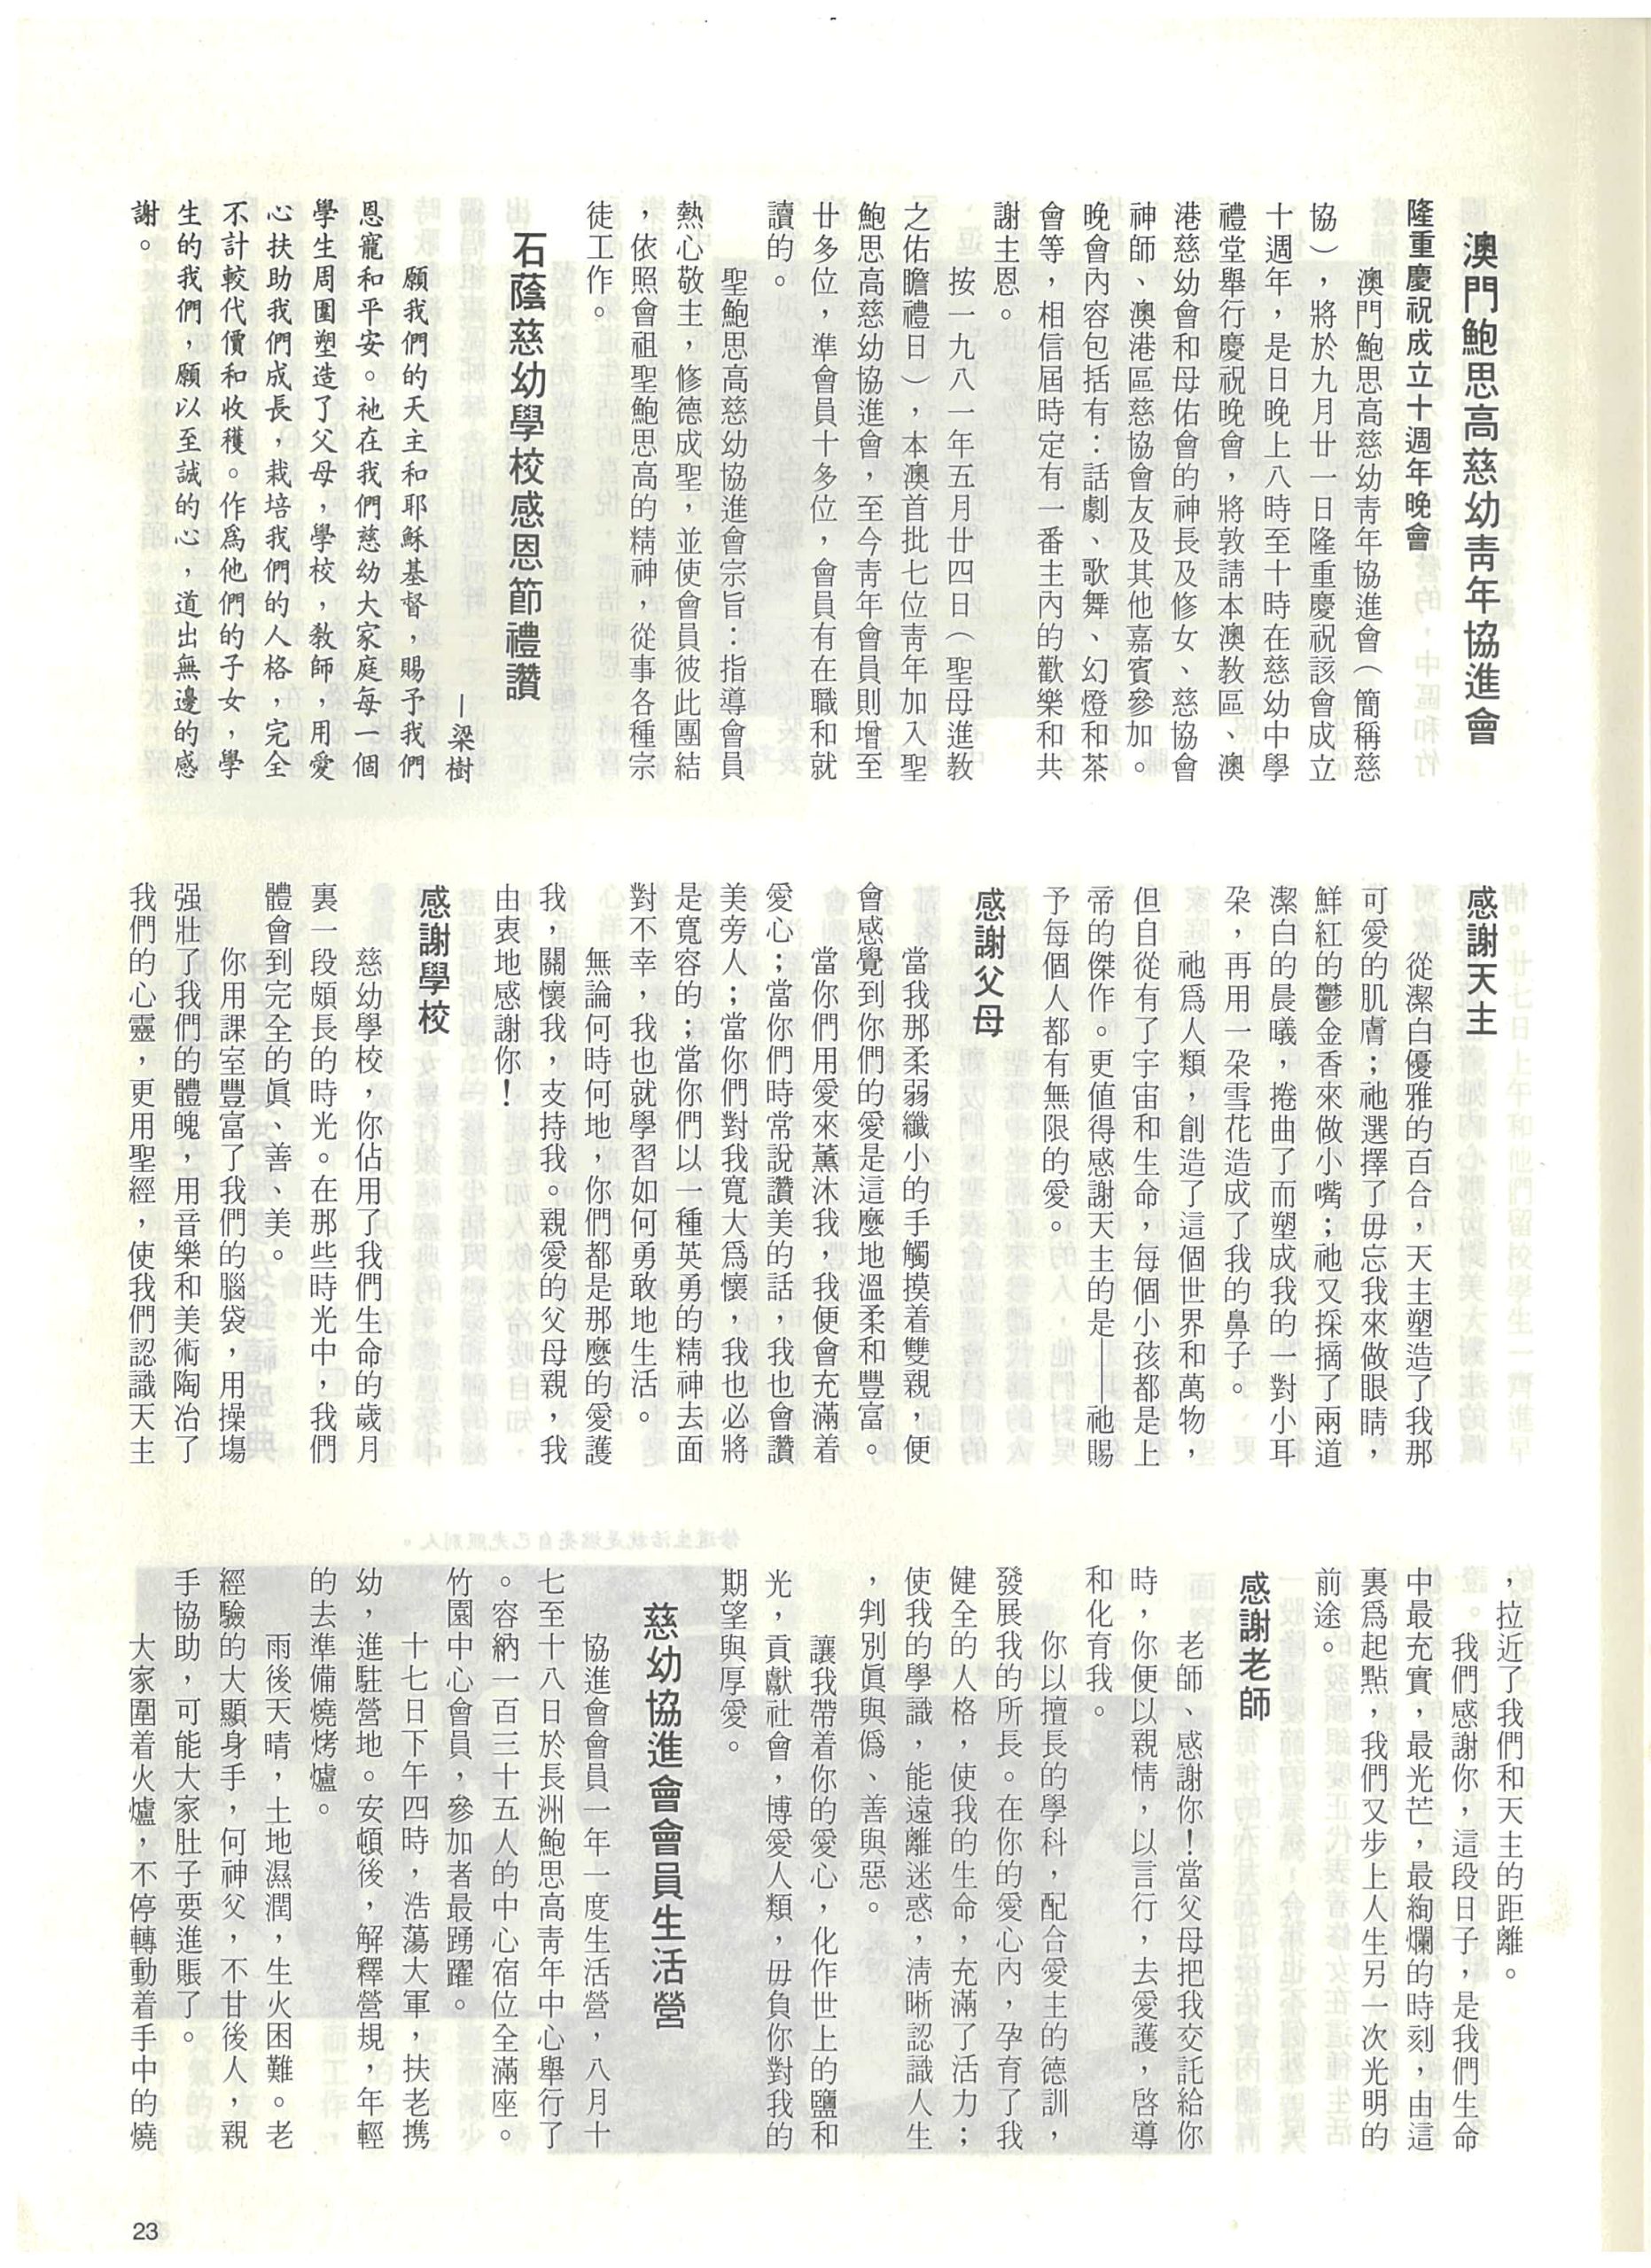 澳門鮑思高慈幼靑年協進會
隆重慶祝成立十週年晚會
澳門鮑思高慈幼靑年協進會（簡稱慈
協），將於九月廿一日隆重慶祝該會成立
十週年，是日晚上八時至十時在慈幼中學
禮堂舉行慶祝晚會，將敦請本澳教區、澳
港慈幼會和母佑會的神長及修女、慈協會
神師、澳港區慈協會友及其他嘉賓參加。
晚會內容包括有：話劇、歌舞、幻燈和茶
會等，相信屆時定有一番主內的歡樂和共
謝主恩。
按一九八一年五月廿四日（聖母進教
之佑瞻禮日），本澳首批七位靑年加入聖
鮑思高慈幼協進會，至今靑年會員則增至
廿多位，準會員十多位，會員有在職和就
讀的。
聖鮑思高慈幼協進會宗旨：指導會員
熱心敬主，修德成聖，並使會員彼此團結
，依照會祖聖鮑思高的精神，從事各種宗
徒工作。
石蔭慈幼學校感恩節禮讚
—梁樹
願我們的天主和耶穌基督，賜予我們
恩寵和平安。祂在我們慈幼大家庭每一個
學生周圍塑造了父母，學校，敎師，用愛
心扶助我們成長，栽培我們的人格，完全
不計較代價和收穫。作爲他們的子女，學
生的我們，願以至誠的心，道出無邊的感
謝。
感謝天主
從潔白優雅的百合，天主塑造了我那
可愛的肌膚；祂選擇了毋忘我來做眼睛，
鮮紅的鬱金香來做小嘴；祂又採摘了兩道
潔白的晨曦，捲曲了而塑成我的一對小耳
朶，再用一朶雪花造成了我的鼻子。
祂爲人類，創造了這個世界和萬物，
但自從有了宇宙和生命，每個小孩都是上
帝的傑作。更值得感謝天主的是——祂賜
予每個人都有無限的愛。
感謝父母
當我那柔弱纖小的手觸摸着雙親，便
會感覺到你們的愛是這麼地溫柔和豐富。
當你們用愛來薰沐我，我便會充滿着
愛心；當你們時常說讚美的話，我也會讚
美旁人；當你們對我寬大爲懷，我也必將
是寬容的；當你們以一種英勇的精神去面
對不幸，我也就學習如何勇敢地生活。
無論何時何地，你們都是那麼的愛護
我，關懷我，支持我。親愛的父母親，我
由衷地感謝你！
感謝學校
慈幼學校，你佔用了我們生命的歲月
裏一段頗長的時光。在那些時光中，我們
體會到完全的眞、善、美。
你用課室豐富了我們的腦袋，用操場
强壯了我們的體魄，用音樂和美術陶冶了
我們的心靈，更用聖經，使我們認識天主
，拉近了我們和天主的距離。
我們感謝你，這段日子，是我們生命
中最充實，最光芒，最絢爛的時刻，由這
裏爲起點，我們又步上人生另一次光明的
前途。
感謝老師
老師、感謝你！當父母把我交託給你
時，你便以親情，以言行，去愛護，啓導
和化育我。
你以擅長的學科，配合愛主的德訓，
發展我的所長。在你的愛心內，孕育了我
健全的人格，使我的生命，充滿了活力；
使我的學識，能遠離迷惑，淸晰認識人生
，判別眞與僞、善與惡。
讓我帶着你的愛心，化作世上的鹽和
光，貢獻社會，博愛人類，毋負你對我的
期望與厚愛。
慈幼協進會會員生活營
協進會會員一年一度生活營，八月十
七至十八日於長洲鮑思高靑年中心舉行了
。容納一百三十五人的中心宿位全滿座。
竹園中心會員，參加者最踴躍。
十七日下午四時，浩蕩大軍，扶老携
幼，進駐營地。安頓後，解釋營規，年輕
的去準備燒烤爐。
雨後天晴，土地濕潤，生火困難。老
經驗的大顯身手，何神父，不甘後人，親
手協助，可能大家肚子要進賬了。
大家圍着火爐，不停轉動着手中的燒
23